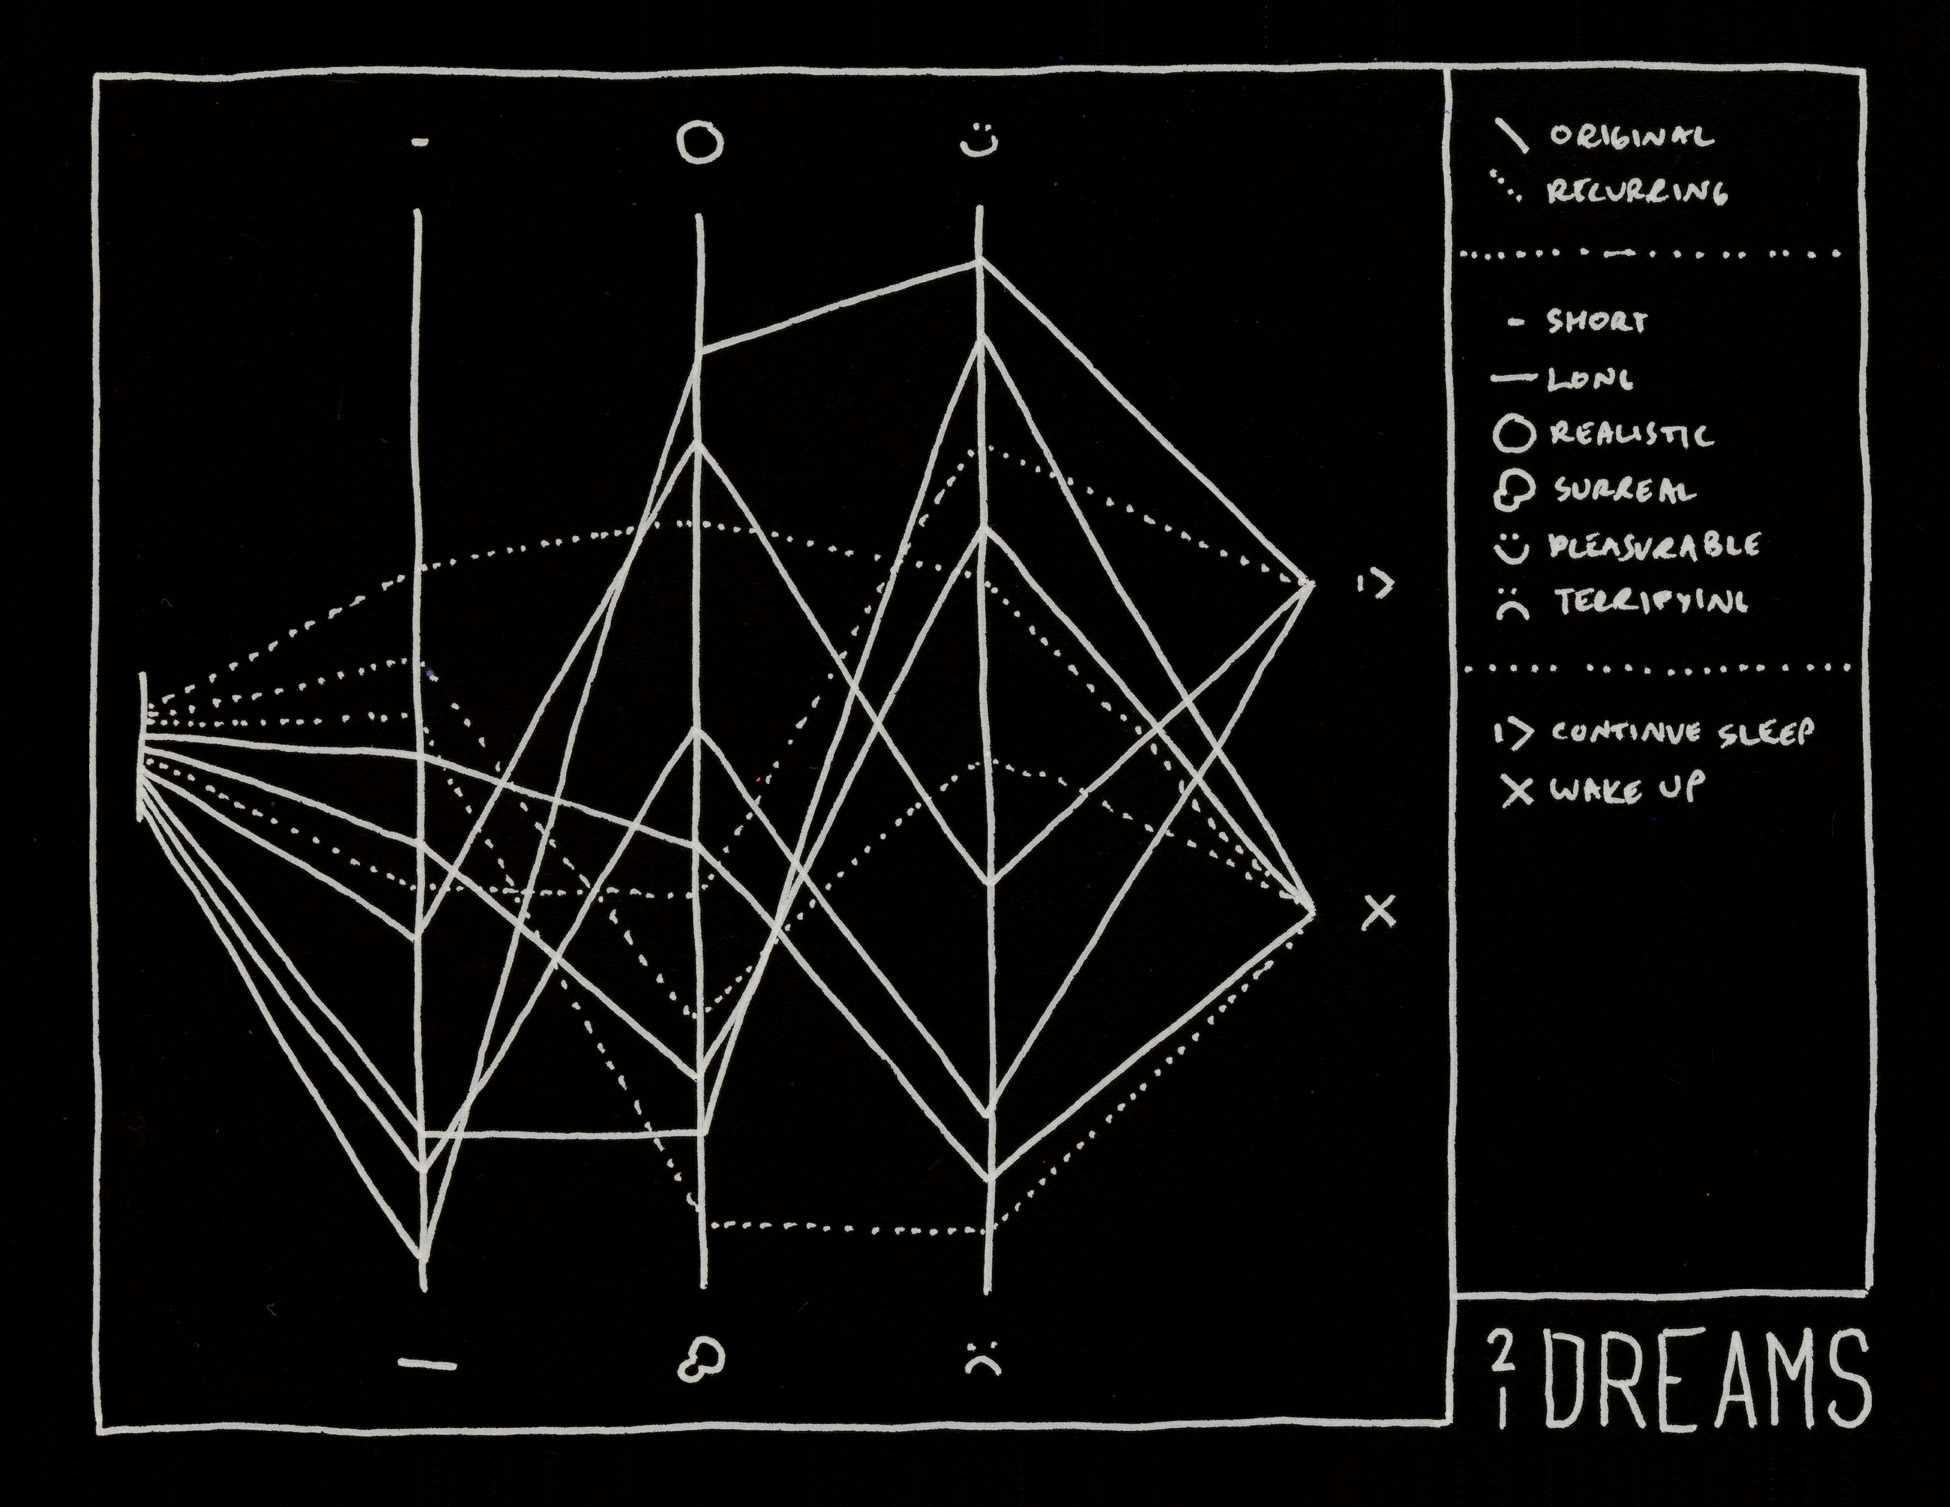 ORIGINAL
RECURRING
SHORT
LONG
REALISTIC
SURREAL
PLEASURABLE
TERRIFYING
CONTINUE SLEEP
WAKE UP
21 DREAMS